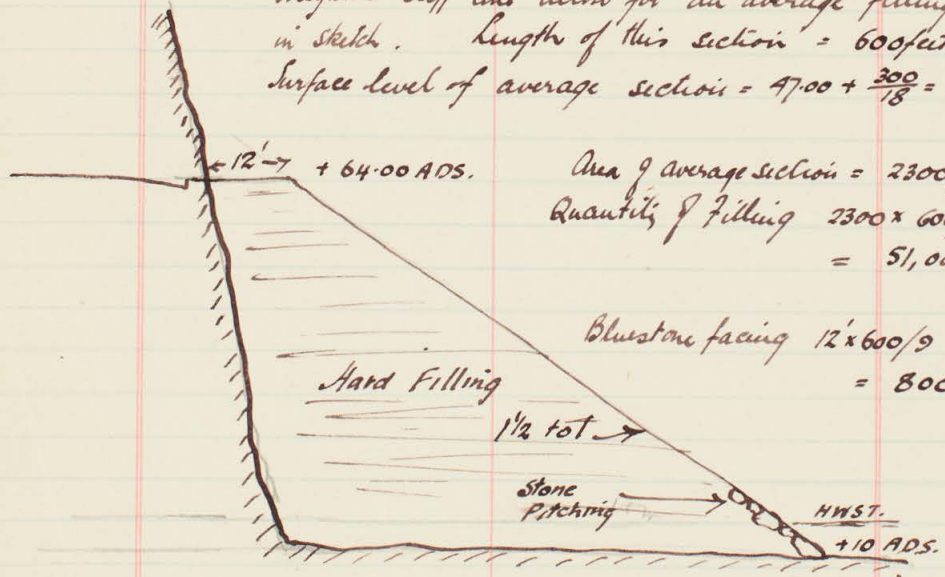 in sketch. Length of this section = 600 feet
Surface level of average section = 47.00 + 300/18 =
←12'→ + 64.00 ADS.
Area of average section = 2300
Quantity of Filling 2300 x 600
= 51,00
Bluestone facing 12' x 600/9
= 800
Hard Filling
1½ to 1
Stone
Pitching
HWST.
+10 ADS.